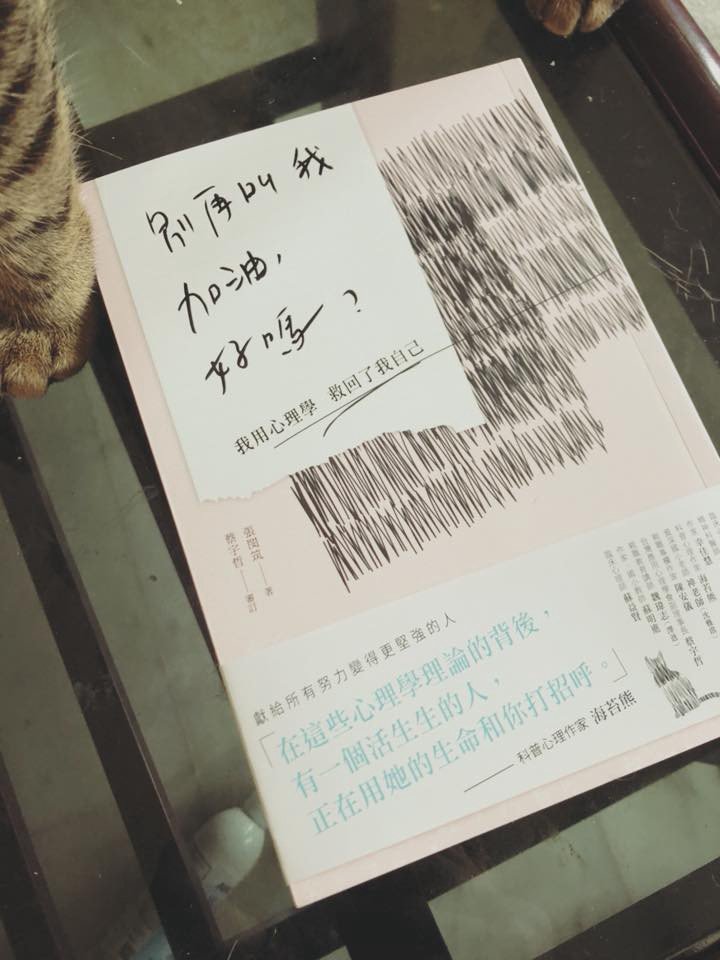 別再叫我
加油，
好嗎？
我用心理學 救回了我自己
張閔筑——著
蔡宇哲——審訂
獻給所有努力變得更堅強的人
「在這些心理學理論的背後，
有一個活生生的人，
正在用她的生命和你打招呼。」
——科普心理作家 海苔熊
蔡宇哲
海苔熊
陳安儀
蘇明進
蘇益賢